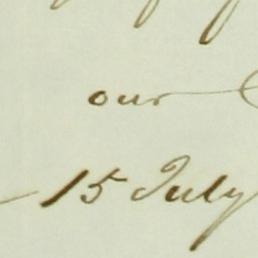 our
15 July